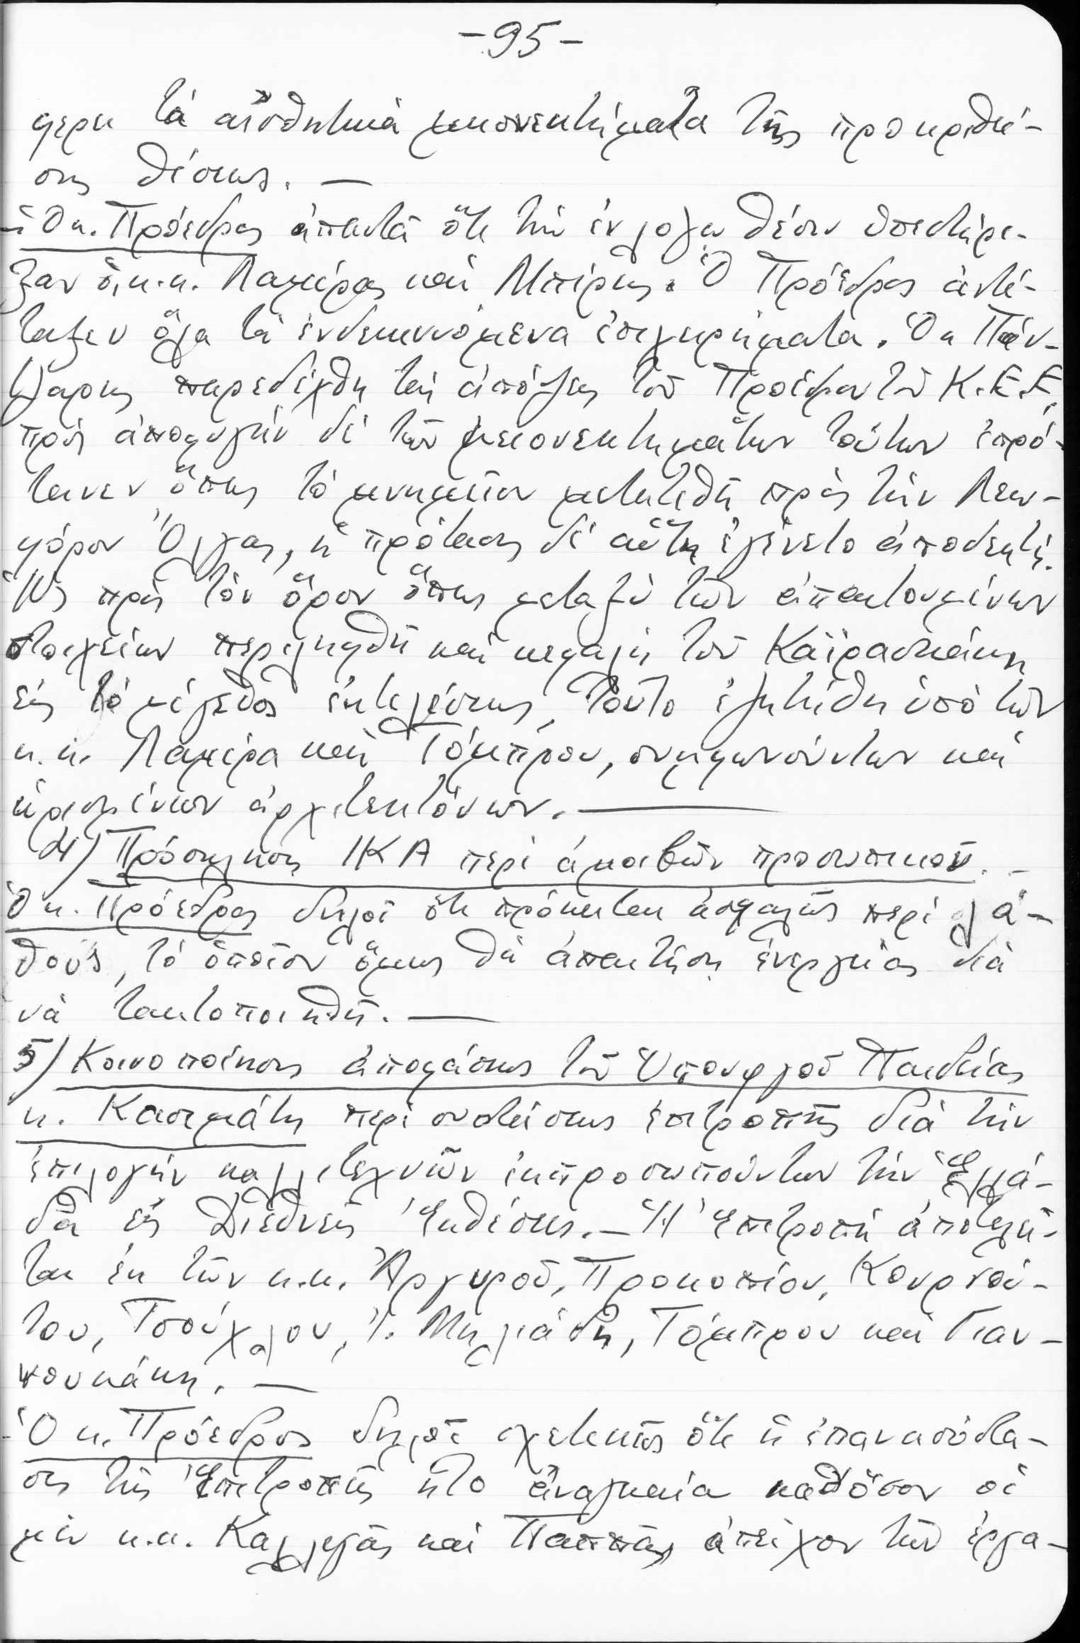 -95-
φερει τά αἰσθητικά μειονεκτήματα τῆς προκριθεί-
σης θέσεως. —
Ὁ κ. Πρόεδρος ἀπαντᾶ ὅτι τήν ἐν λόγῳ θέσιν ὑπεστήρι-
ξαν οἱ κ.κ. Λαμέρας καί Μπίρης. Ὁ Πρόεδρος ἀντέ-
ταξεν ὅλα τά ἐνδεικνυόμενα ἐπιχειρήματα. Ὁ κ. Πάν-
τζαρης παρεδέχθη τάς ἀπόψεις τοῦ Προέδρου τοῦ Κ.Ε.Ε,
πρός ἀποφυγήν δέ τῶν μειονεκτημάτων τούτων ἐπρό-
τεινεν ὅπως τό μνημεῖον μετατεθῆ πρός τήν Λεω-
φόρον Ὄλγας, ἡ πρότασις δέ αὕτη ἐγένετο ἀποδεκτή.
Ὡς πρός τόν ὅρον ὅπως μεταξύ τῶν ἀπαιτουμένων
στοιχείων περιληφθῆ καί κεφαλή τοῦ Καραϊσκάκη
εἰς τό μέγεθος ἐκτελέσεως, τοῦτο ἐζητήθη ὑπό τῶν
κ.κ. Λαμέρα καί Τόμπρου, συμφωνούντων καί
ὡρισμένων ἀρχιτεκτόνων. —
4) Πρόσκλησις ΙΚΑ περί ἀμοιβῶν προσωπικοῦ. —
Ὁ κ. Πρόεδρος δηλοῖ ὅτι πρόκειται ἀσφαλῶς περί λά-
θους, τό ὁποῖον ὅμως θά ἀπαιτήση ἐνεργείας διά
νά τακτοποιηθῆ. —
5) Κοινοποίησις ἀποφάσεως τοῦ Ὑπουργοῦ Παιδείας
κ. Κασιμάτη περί συστάσεως ἐπιτροπῆς διά τήν
ἐπιλογήν καλλιτεχνῶν ἐκπροσωπούντων τήν Ἑλλά-
δα εἰς Διεθνεῖς Ἐκθέσεις. — Ἡ Ἐπιτροπή ἀποτελεῖ-
ται ἐκ τῶν κ.κ. Ἀργυροῦ, Προκοπίου, Κουρνού-
του, Τσούχλου, Γ. Μηλιάδη, Τόμπρου καί Γιαν-
νουκάκη. —
Ὁ κ. Πρόεδρος δηλοῖ σχετικῶς ὅτι ἡ ἐπανασύστα-
σις τῆς Ἐπιτροπῆς ἦτο ἀναγκαία καθ' ὅσον οἱ
μέν κ.κ. Καλλιγᾶς καί Παππᾶς ἀπεῖχον τῶν ἐργα-